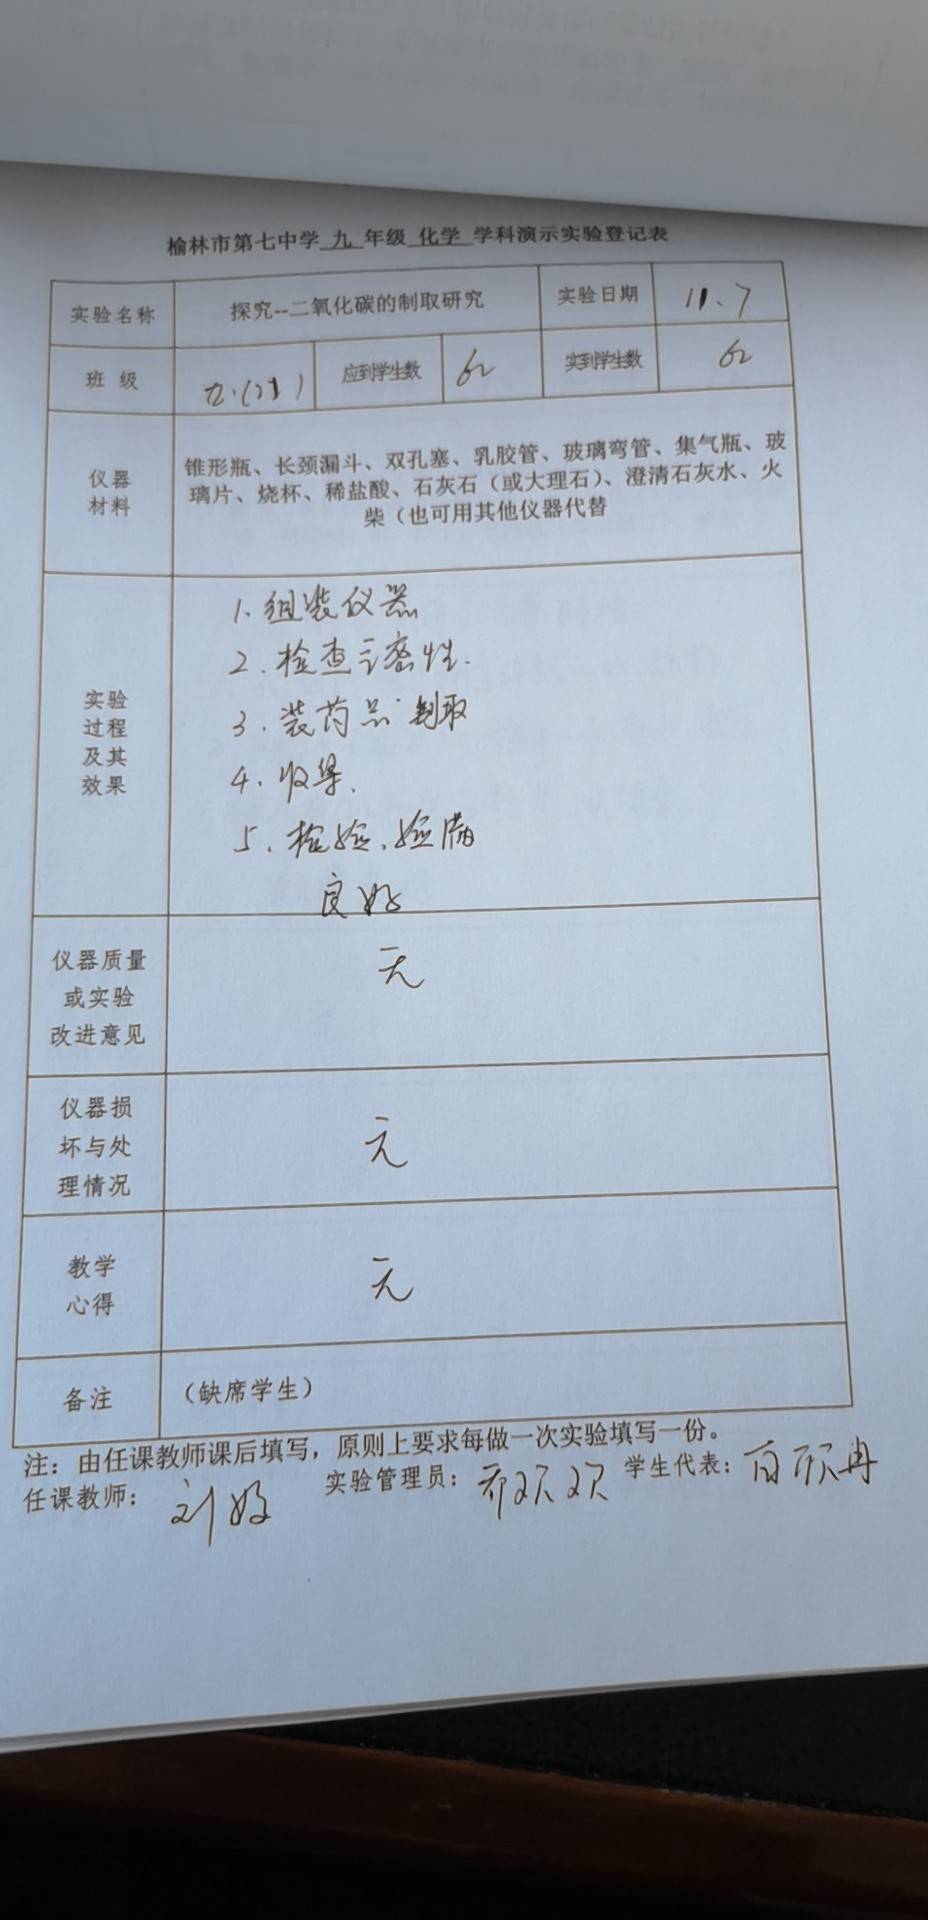 榆林市第七中学 九 年级 化学 学科演示实验登记表
实验名称 探究--二氧化碳的制取研究 实验日期 11.7
班 级 九.(21) 应到学生数 62 实到学生数 62
仪器
材料
锥形瓶、长颈漏斗、双孔塞、乳胶管、玻璃弯管、集气瓶、玻
璃片、烧杯、稀盐酸、石灰石（或大理石）、澄清石灰水、火
柴（也可用其他仪器代替
实验
过程
及其
效果
1、组装仪器
2.检查密性.
3.装药品 制取
4.收集.
5.检验、验满
良好
仪器质量
或实验
改进意见
无
仪器损
坏与处
理情况
无
教学
心得
无
备注 （缺席学生）
注：由任课教师课后填写，原则上要求每做一次实验填写一份。
任课教师： 刘 实验管理员： 学生代表：